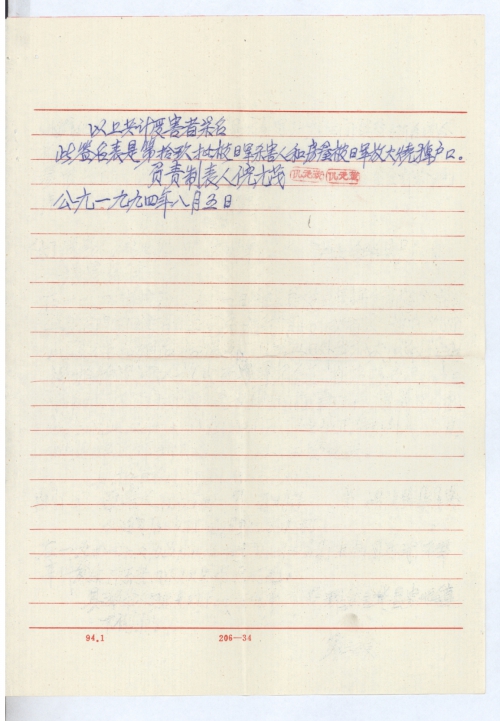 以上共计受害者柒名
此签名表是第拾玖批被日军杀害人和房屋被日军放火烧掉户口。
负责制表人 茂
公元一九九四年八月五日
94.1 206—34